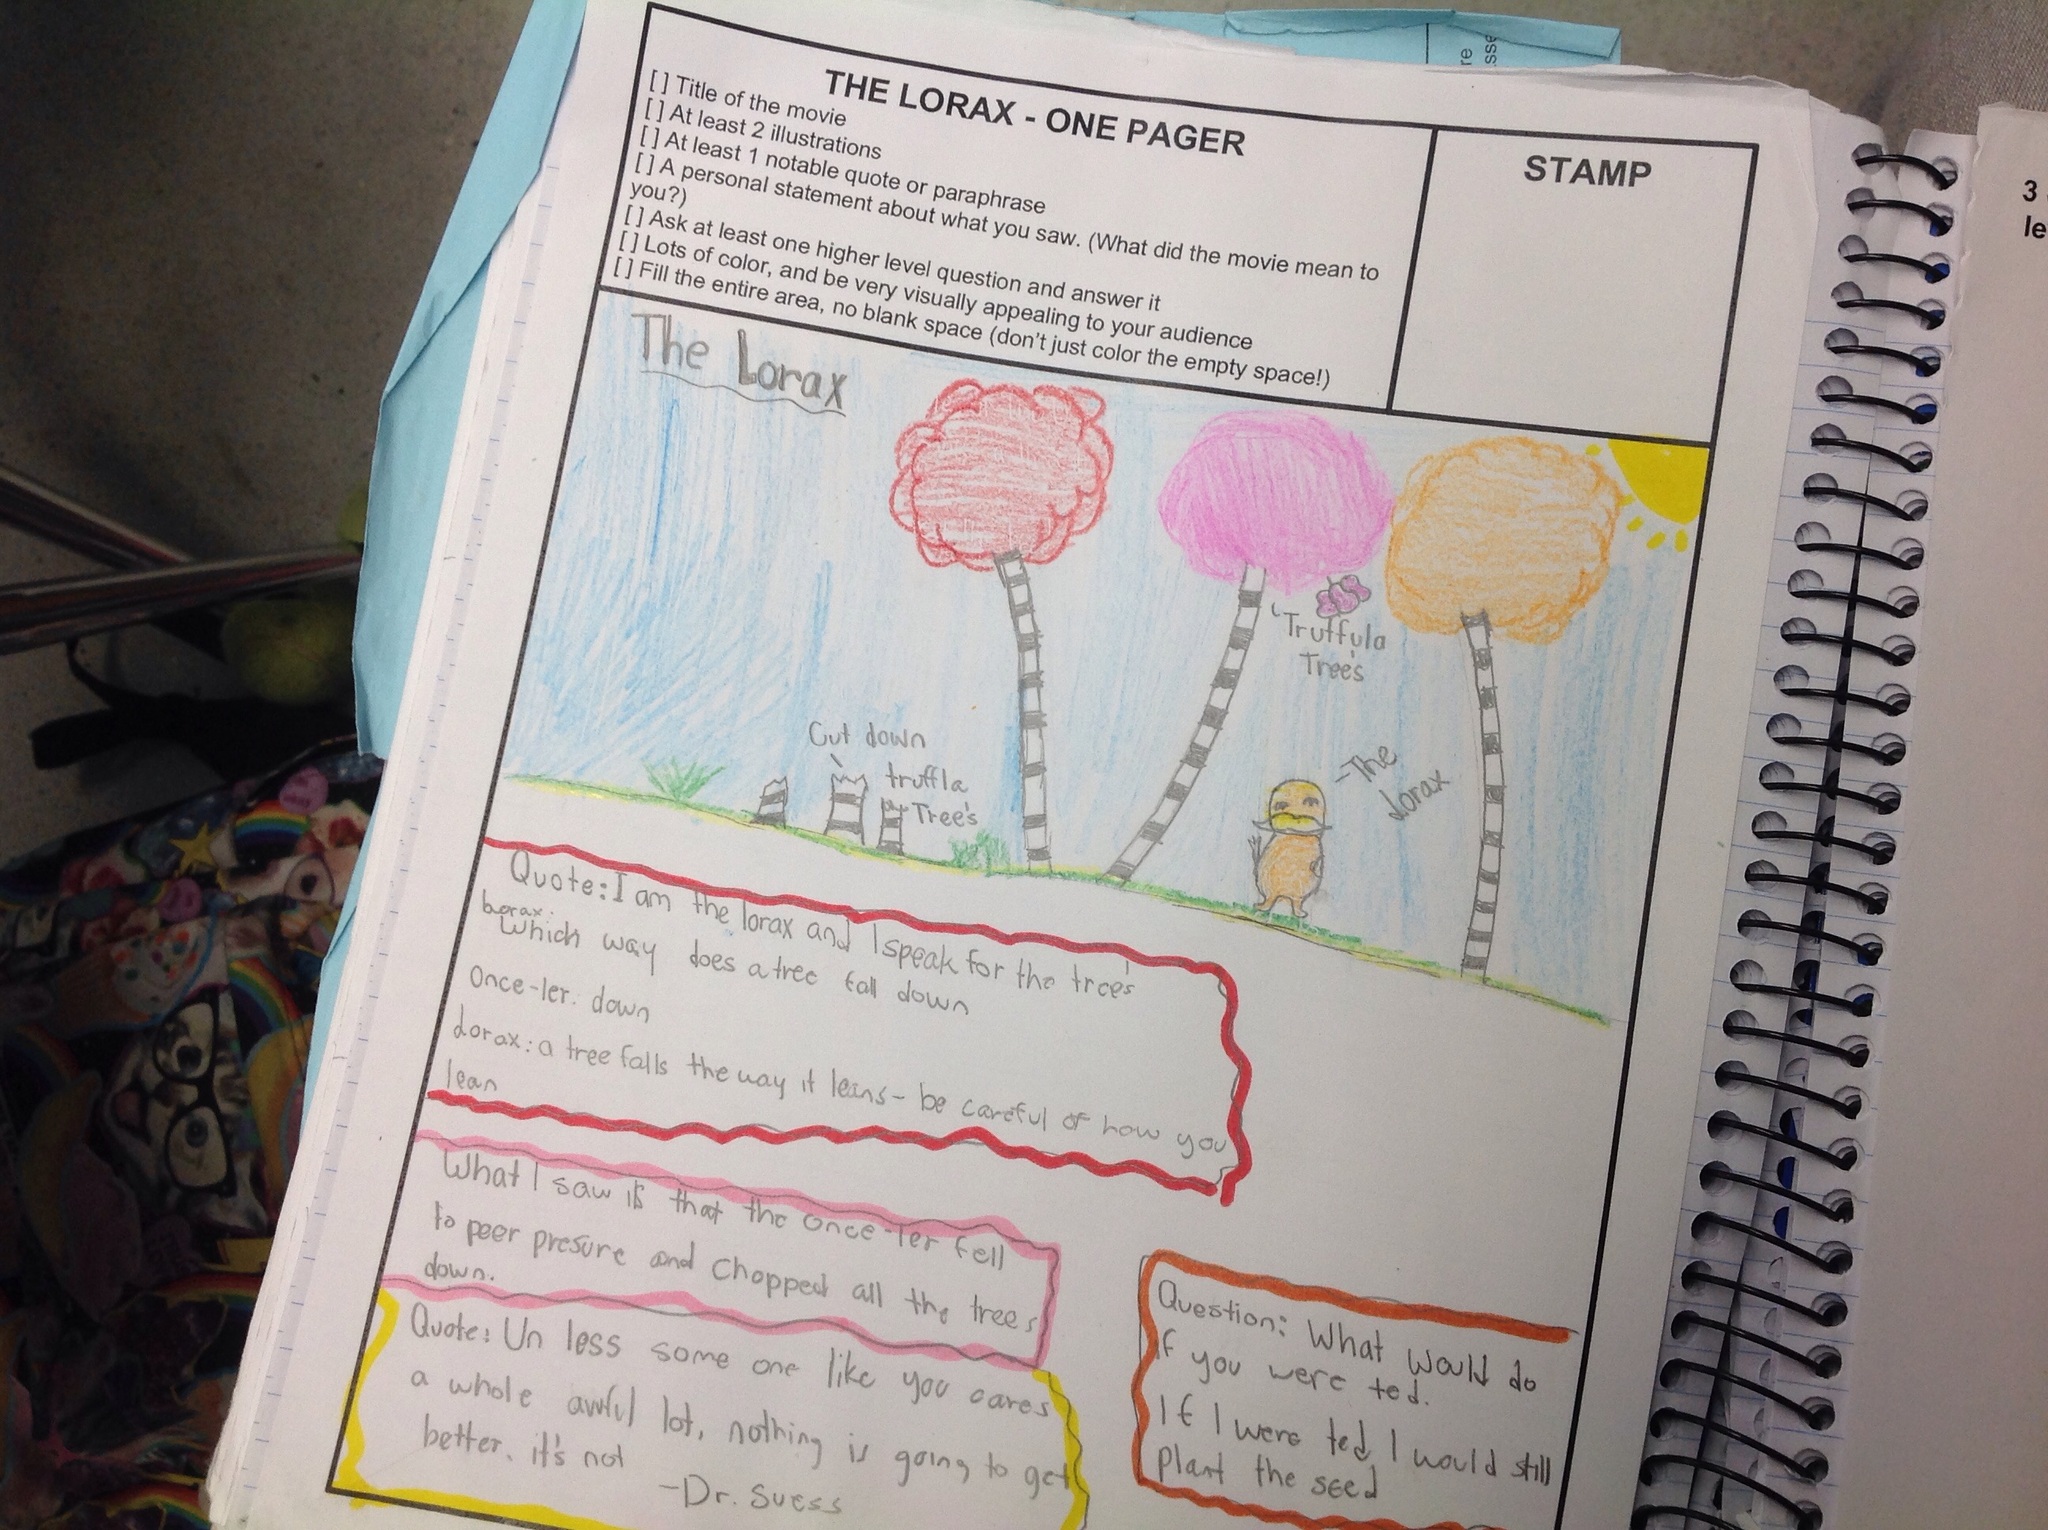 THE LORAX - ONE PAGER
[ ] Title of the movie
[ ] At least 2 illustrations
[ ] At least 1 notable quote or paraphrase
[ ] A personal statement about what you saw. (What did the movie mean to
you?)
[ ] Ask at least one higher level question and answer it
[ ] Lots of color, and be very visually appealing to your audience
[ ] Fill the entire area, no blank space (don't just color the empty space!)
STAMP
The Lorax
Truffula
Tree's
Cut down
truffla
Tree's
-The
Lorax
Quote: I am the lorax and I speak for the tree's
lorax:
Which way does a tree fall down
Once-ler: down
Lorax: a tree falls the way it leans- be careful of how you
lean
What I saw is that the once-ler fell
to peer presure and chopped all the trees
down.
Quote: Un less some one like you cares
a whole awful lot, nothing is going to get
better. it's not
-Dr. Suess
Question: What would do
if you were ted.
If I were ted I would still
plant the seed
3
le
re
sse